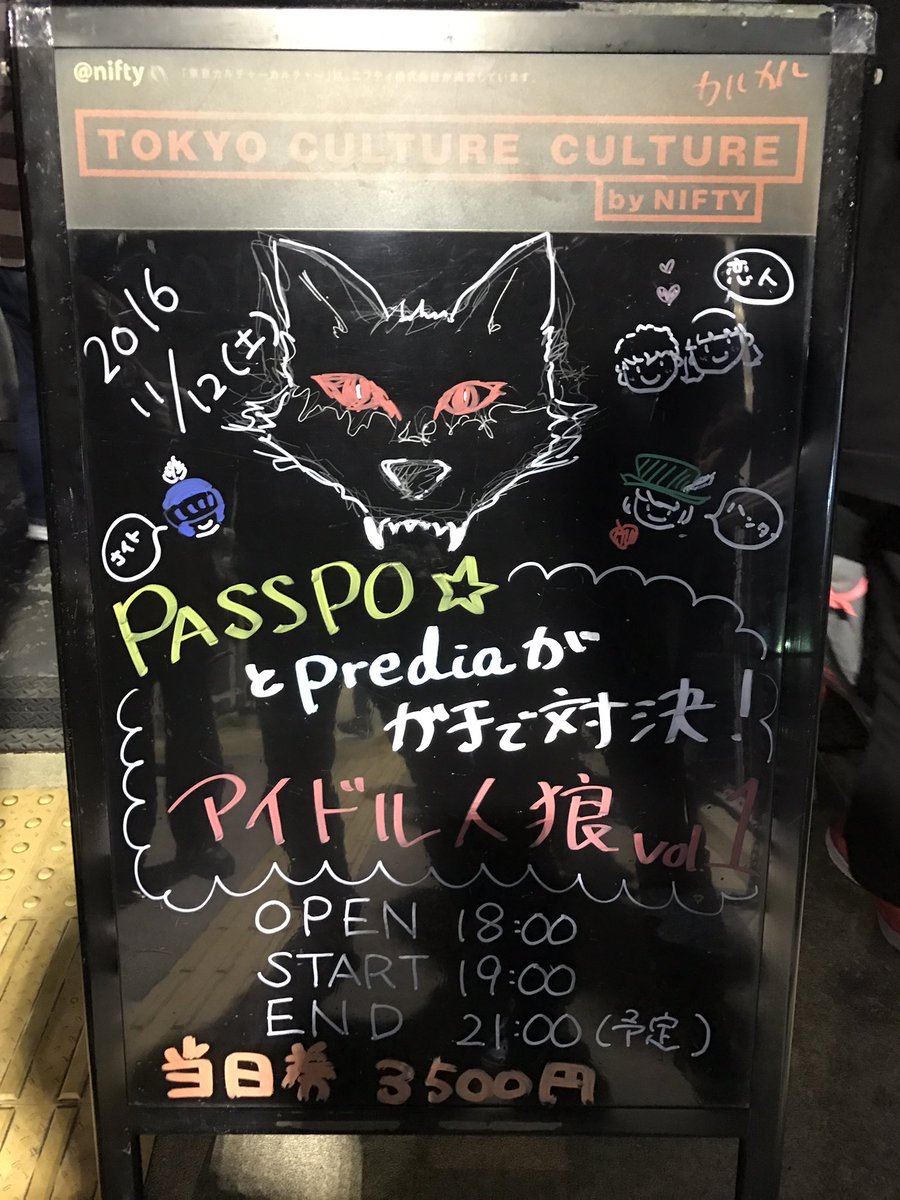 @nifty 「東京カルチャーカルチャー」は、ニフティ株式会社が運営しています。
カルカル
TOKYO CULTURE CULTURE
by NIFTY
2016
11/12(土)
恋人
ナイト
ハンター
PASSPO☆
とprediaが
ガチで対決!
アイドル人狼 vol 1
OPEN 18:00
START 19:00
END 21:00(予定)
当日券 3500円